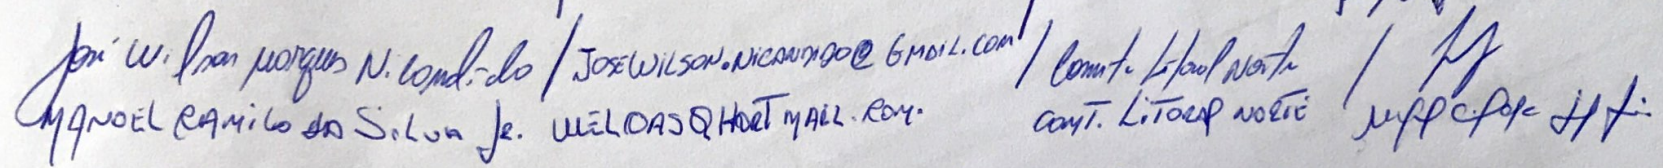 José Wilson Marques Nicandido / JOSEWILSON.NICANDIDO@GMAIL.COM / Comitê Litoral Norte /
MANOEL CAMILO DA SILVA Jr. WELDASQHORTMAIL.COM. COMT. LITORAL NORTE